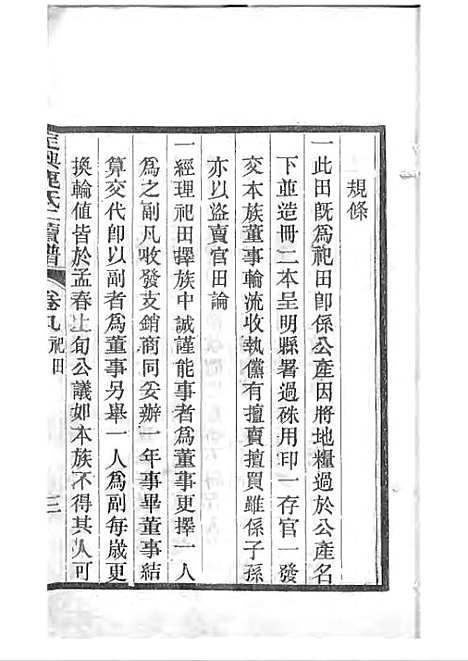 規條
一此田旣爲祀田卽係公產因將地糧過於公產名
下並造冊二本呈明縣署過硃用印一存官一發
交本族董事輪流收執儻有擅賣擅買雖係子孫
亦以盜賣官田論
一經理祀田擇族中誠謹能事者爲董事更擇一人
爲之副凡收發支銷商同妥辦一年事畢董事結
算交代卽以副者爲董事另舉一人爲副每歲更
換輪值皆於孟春上旬公議如本族不得其人可
定興鹿氏二續譜 卷九 祀田 三